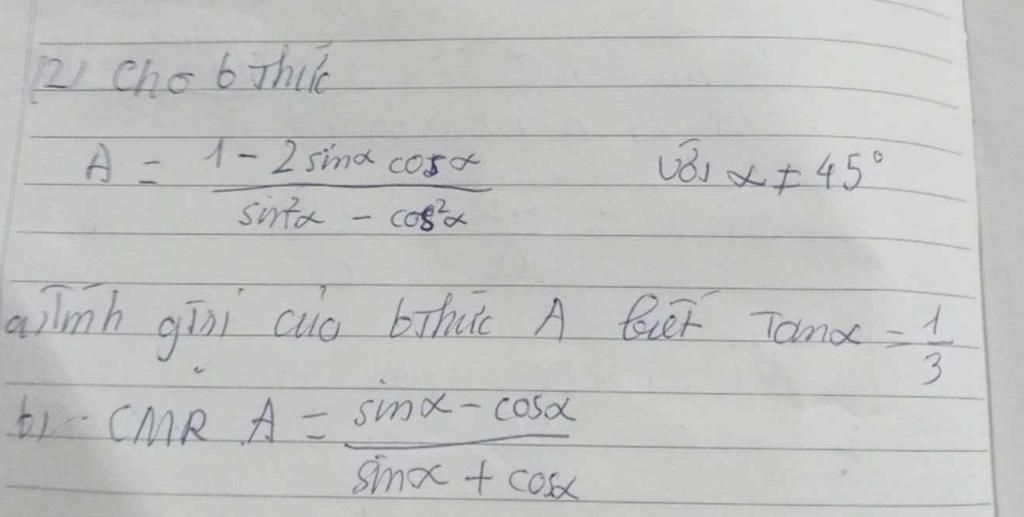 12) Cho bthức
A = \frac{1 - 2 sinα cosα}{sin²α - cos²α} với α ≠ 45°
a) Tính gtrị của bthức A biết Tanα = \frac{1}{3}
b) - CMR A = \frac{sinα - cosα}{sinα + cosα}